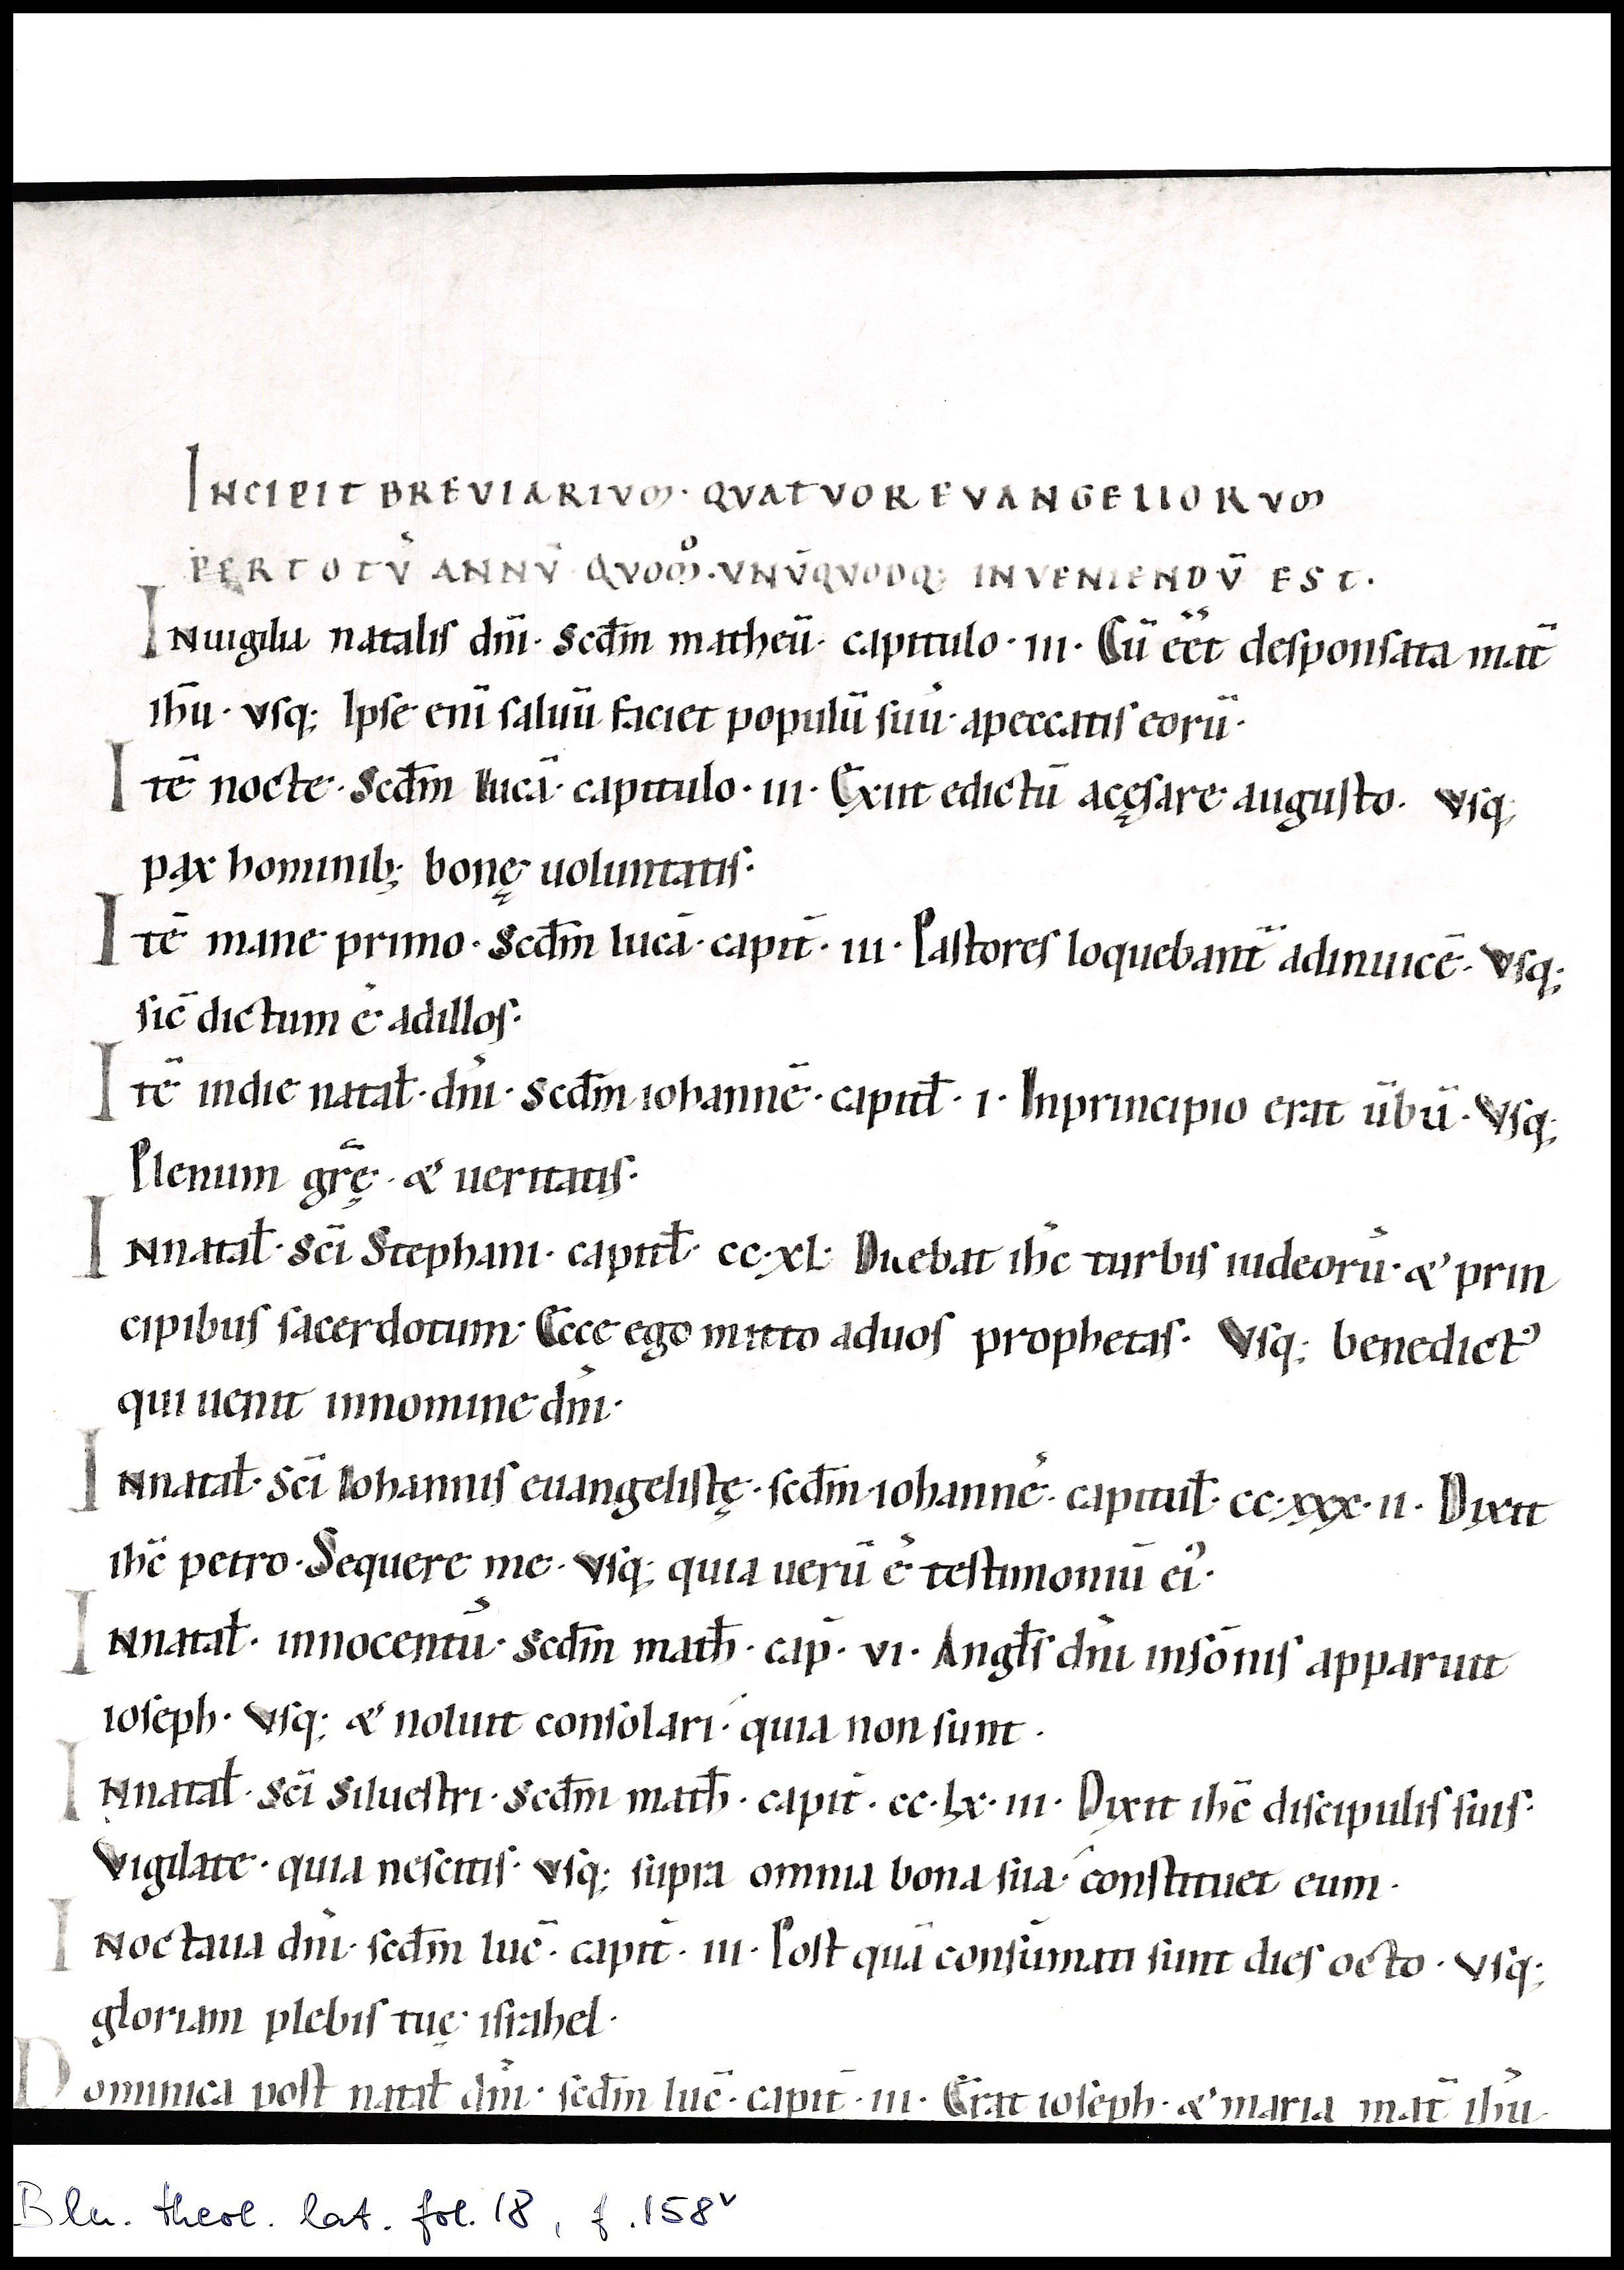 INCIPIT BREVIARIVM · QVATVOR EVANGELIORVM
PER TOTV̄ ANNV̄ QVOMͦ · VNV̄QVODQ; INVENIENDV̄ EST ·
INuigilia natalis dn̄i · Scd̄m matheū · capitulo · III · Cū eēt desponsata mat̄
ih̄u · vsq; Ipse eni̅ saluū faciet populū suū · apeccatis eorū ·
Itē nocte · Scd̄m lucā · capitulo · III · Exiit edictū acęsare augusto · vsq;
pax hominib; bonę uoluntatis ·
Itē mane primo · Scd̄m lucā · capit̄ · III · Pastores loquebant̄ adinuicē · Vsq;
sic̄ dictum ē adillos ·
Itē indie natal̄ · dn̄i · Scd̄m iohannē · capitl̄ · I · Inprincipio erat ūbū · Vsq;
Plenum gr̄ę · & ueritatis ·
INnatal̄ · Sc̄i Stephani · capitl̄ · CC · XL · Dicebat ih̄c turbis iudeorū · & prin
cipibus sacerdotum · Ecce ego mitto aduos prophetas · Vsq; benedict᾽
qui uenit innomine dn̄i ·
INnatal̄ · Sc̄i Iohannis euangelistę · scd̄m iohannē · capitul̄ · CC · XXX · II · Dixit
ih̄c petro · Sequere me · vsq; quia uerū ē testimoniū ei᾽ ·
INnatal̄ · innocentū · Scd̄m math̄ · cap̄ · VI · Angl̄s dn̄i insōnis apparuit
ioseph · Vsq; & noluit consolari · quia non sunt ·
INnatal̄ · Sc̄i Siluestri · Scd̄m math̄ · capit̄ · CC · LX · III · Dixit ih̄c discipulis suis ·
Vigilate · quia nescitis · vsq; supra omnia bona sua · constituet eum ·
INoctaua dn̄i · scd̄m luc̄ · capit̄ · III · Post quā consūmati sunt dies octo · vsq;
gloriam plebis tuę israhel ·
Dominica post natal̄ dn̄i · scd̄m luc̄ · capit̄ · III · Erat ioseph · & maria mat̄ ih̄u
Bln. theol. lat. fol. 18, f. 158v